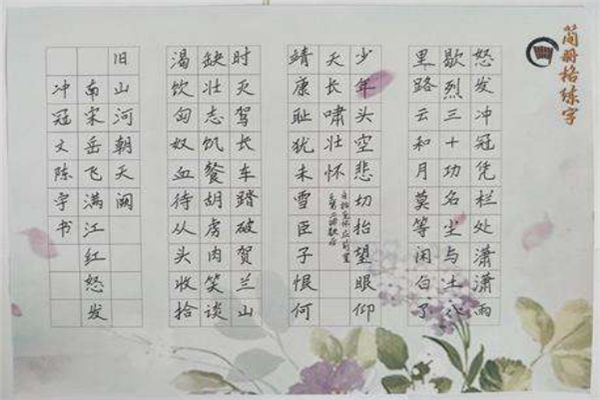 简册格练字
怒发冲冠凭栏处潇潇雨
歇烈三十功名尘与土八
里路云和月莫等闲白了
少年头空悲切抬望眼仰
天长啸壮怀
靖康耻犹未雪臣子恨何
时灭驾长车踏破贺兰山
缺壮志饥餐胡虏肉笑谈
渴饮匈奴血待从头收拾
旧山河朝天阙
南宋岳飞满江红怒发
冲冠文陈宇书